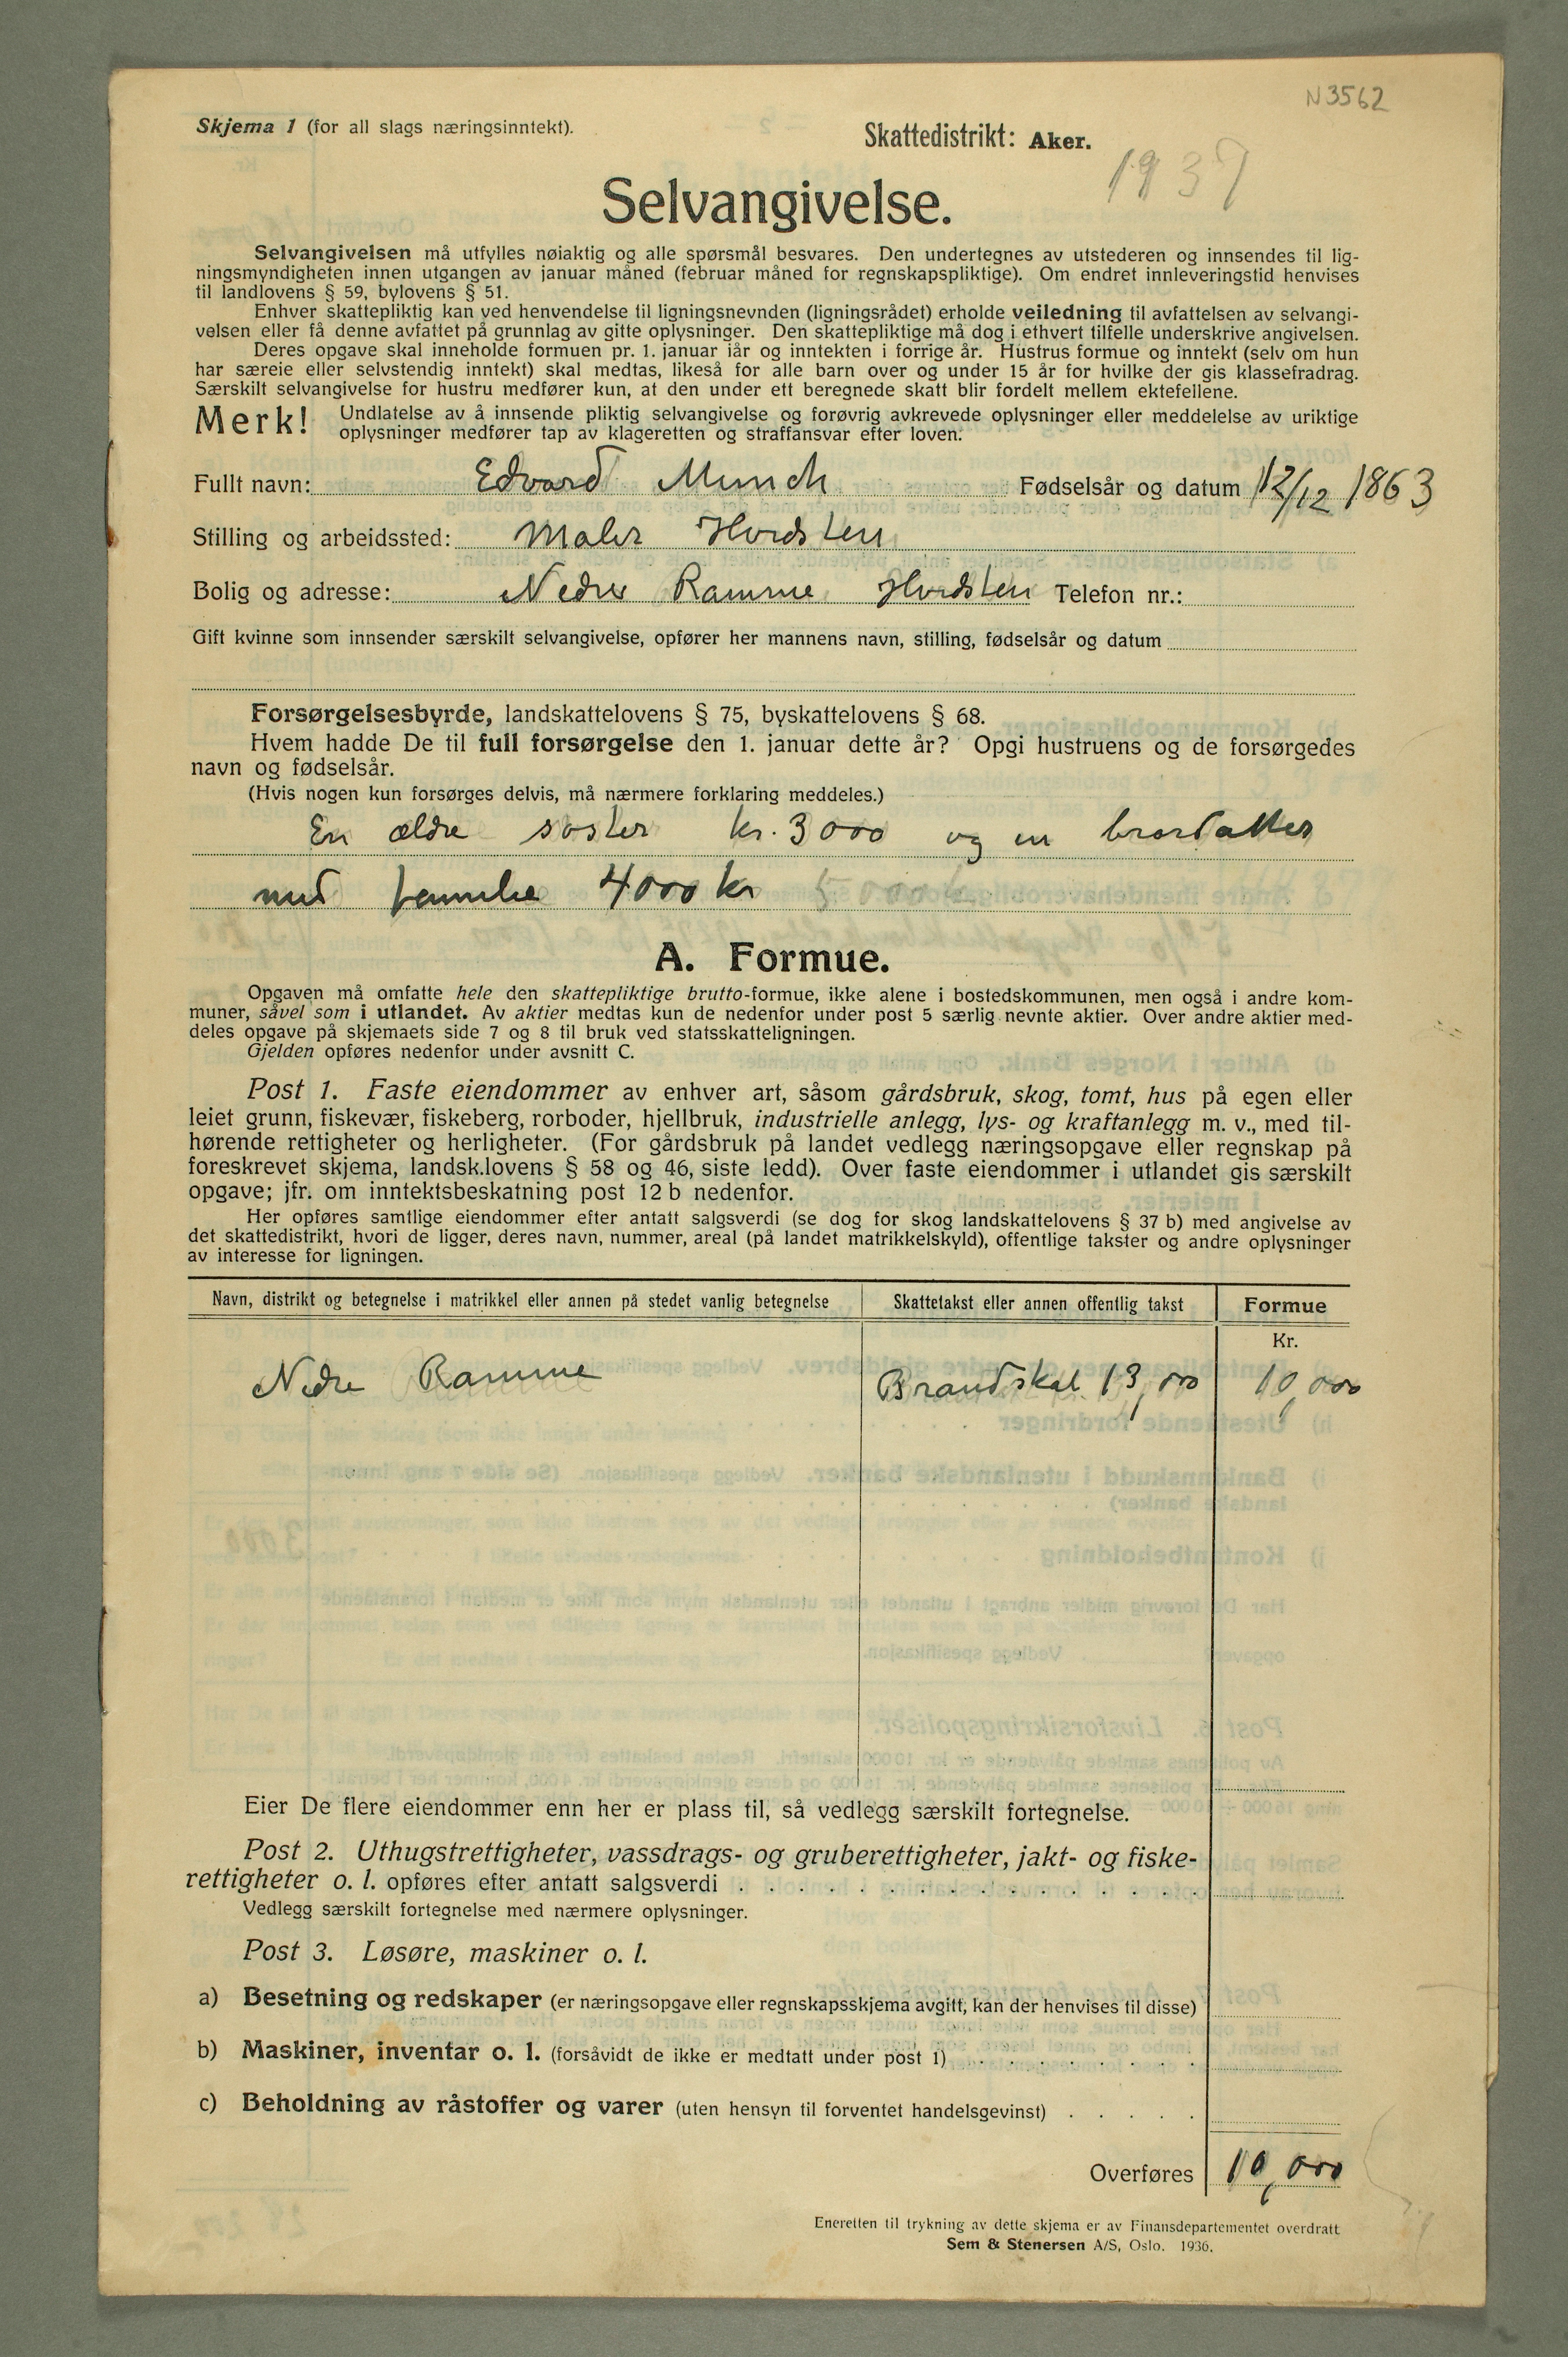 N 3562
Skjema 1 (for all slags næringsinntekt).
Skattedistrikt: Aker.
1937
Selvangivelse.
Selvangivelsen må utfylles nøiaktig og alle spørsmål besvares. Den undertegnes av utstederen og innsendes til lig-
ningsmyndigheten innen utgangen av januar måned (februar måned for regnskapspliktige). Om endret innleveringstid henvises
til landlovens § 59, bylovens § 51.
Enhver skattepliktig kan ved henvendelse til ligningsnevnden (ligningsrådet) erholde veiledning til avfattelsen av selvangi-
velsen eller få denne avfattet på grunnlag av gitte oplysninger. Den skattepliktige må dog i ethvert tilfelle underskrive angivelsen.
Deres opgave skal inneholde formuen pr. 1. januar iår og inntekten i forrige år. Hustrus formue og inntekt (selv om hun
har særeie eller selvstendig inntekt) skal medtas, likeså for alle barn over og under 15 år for hvilke der gis klassefradrag.
Særskilt selvangivelse for hustru medfører kun, at den under ett beregnede skatt blir fordelt mellem ektefellene.
Merk! Undlatelse av å innsende pliktig selvangivelse og forøvrig avkrevede oplysninger eller meddelelse av uriktige
oplysninger medfører tap av klageretten og straffansvar efter loven.
Fullt navn: Edvard Munch Fødselsår og datum 12/12 1863
Stilling og arbeidssted: Maler Hvidsten
Bolig og adresse: Nedre Ramme Hvidsten Telefon nr.:
Gift kvinne som innsender særskilt selvangivelse, opfører her mannens navn, stilling, fødselsår og datum
Forsørgelsesbyrde, landskattelovens § 75, byskattelovens § 68.
Hvem hadde De til full forsørgelse den 1. januar dette år? Opgi hustruens og de forsørgedes
navn og fødselsår.
(Hvis nogen kun forsørges delvis, må nærmere forklaring meddeles.)
En ældre søster kr. 3000 og en brordatter
med familie 4000 kr 5000
A. Formue.
Opgaven må omfatte hele den skattepliktige brutto-formue, ikke alene i bostedskommunen, men også i andre kom-
muner, såvel som i utlandet. Av aktier medtas kun de nedenfor under post 5 særlig nevnte aktier. Over andre aktier med-
deles opgave på skjemaets side 7 og 8 til bruk ved statsskatteligningen.
Gjelden opføres nedenfor under avsnitt C.
Post 1. Faste eiendommer av enhver art, såsom gårdsbruk, skog, tomt, hus på egen eller
leiet grunn, fiskevær, fiskeberg, rorboder, hjellbruk, industrielle anlegg, lys- og kraftanlegg m. v., med til-
hørende rettigheter og herligheter. (For gårdsbruk på landet vedlegg næringsopgave eller regnskap på
foreskrevet skjema, landsk.lovens § 58 og 46, siste ledd). Over faste eiendommer i utlandet gis særskilt
opgave; jfr. om inntektsbeskatning post 12 b nedenfor.
Her opføres samtlige eiendommer efter antatt salgsverdi (se dog for skog landskattelovens § 37 b) med angivelse av
det skattedistrikt, hvori de ligger, deres navn, nummer, areal (på landet matrikkelskyld), offentlige takster og andre oplysninger
av interesse for ligningen.
Navn, distrikt og betegnelse i matrikkel eller annen på stedet vanlig betegnelse Skattetakst eller annen offentlig takst Formue
Kr.
Nedre Ramme Brandskat 13,000 10,000
Eier De flere eiendommer enn her er plass til, så vedlegg særskilt fortegnelse.
Post 2. Uthugstrettigheter, vassdrags- og gruberettigheter, jakt- og fiske-
rettigheter o. l. opføres efter antatt salgsverdi . . . . . . . . . . . . . . . .
Vedlegg særskilt fortegnelse med nærmere oplysninger.
Post 3. Løsøre, maskiner o. l.
a) Besetning og redskaper (er næringsopgave eller regnskapsskjema avgitt, kan der henvises til disse)
b) Maskiner, inventar o. l. (forsåvidt de ikke er medtatt under post 1) . . . . . . . .
c) Beholdning av råstoffer og varer (uten hensyn til forventet handelsgevinst) . . . . .
Overføres 10,000
Eneretten til trykning av dette skjema er av Finansdepartementet overdratt
Sem & Stenersen A/S, Oslo. 1936.